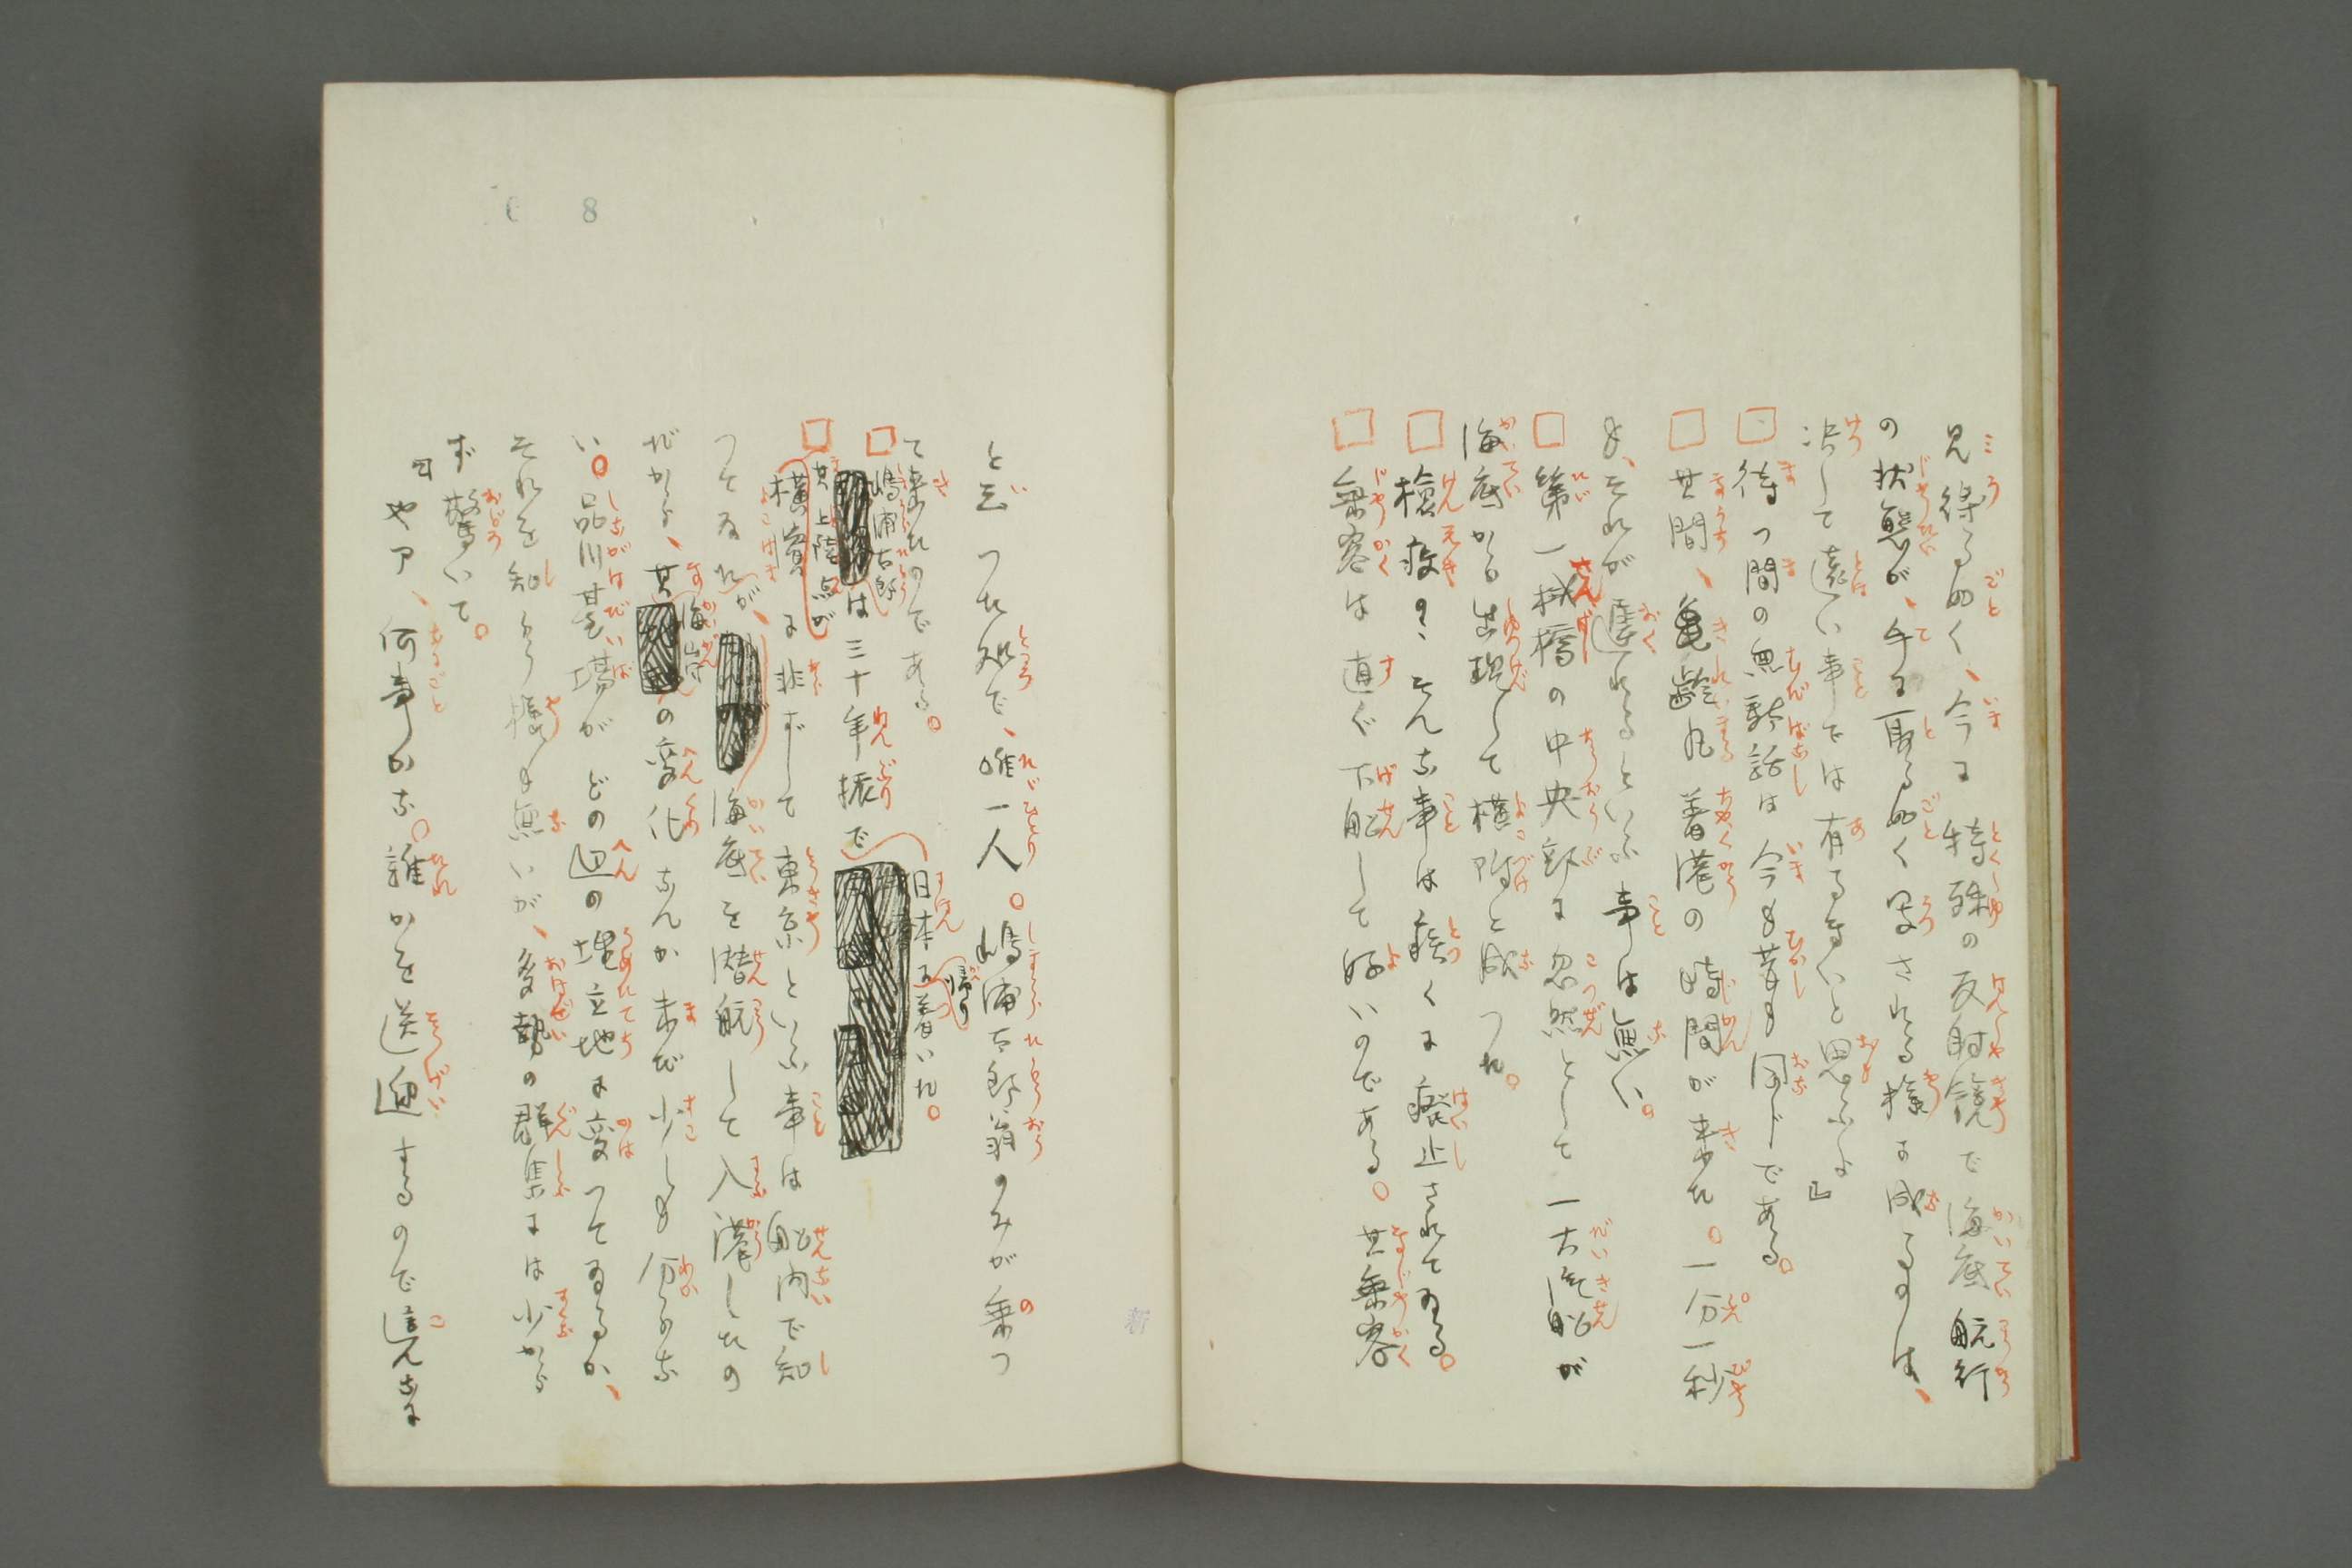 見得る如く、今に特殊の反射鏡で海底航行
の状態が、手に取る如く写される様に成るのは、
决して遠い事では有るまいと思ふよ』
□待つ間の無駄話は今も昔も同じである。
□其間、亀齢丸着港の時間が来た。一分一秒
も、それが遅れるといふ事は無い。
□第一桟橋の中央部に忽然として一大汽船が
海底から出現して横附と成つた。
□檢疫の、そんな事は疾くに癈止されてゐる。
□乗客は直ぐ下船して好いのである。其乗客
と云つた処で、唯一人。嶋浦太郎翁のみが乗つ
て来たのである。
□嶋浦太郎は三十年振で日本に帰り着いた。
□其上陸点が横濱に非ずして東京といふ事は船内で知
つてゐたが、海底を潜航して入港したの
だから、其海岸の変化なんか未だ少しも分らな
い。品川芝塲がどの辺の埋立地に変つてゐるか、
それを知らう様も無いが、多勢の群集には少から
ず驚いて。
『ヤア、何事かな。誰かを送迎するので這んなに
8
新